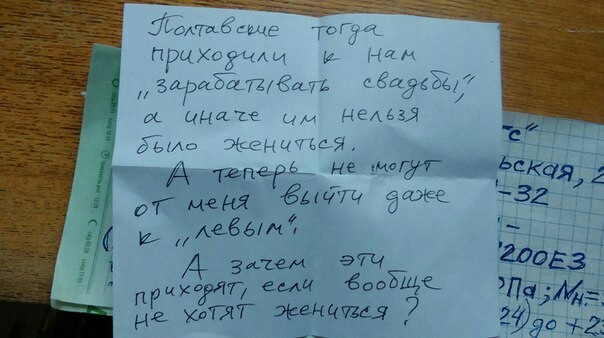 Полтавские тогда
приходили к нам
„зарабатывать свадьбы",
а иначе им нельзя
было жениться.
А теперь не могут
от меня выйти даже
к „левым".
А зачем эти
приходят, если вообще
не хотят жениться?
с"
ьская, 2
-32
-
200ЕЗ
Па; Nн=
24) до +23